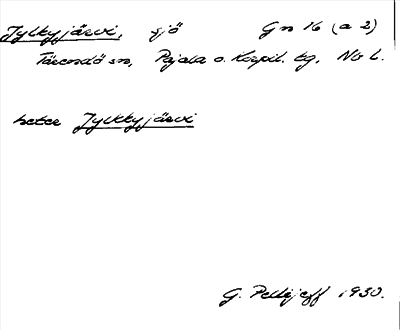 Jylkyjärvi, sjö Gn 16 (a 2)
Tärendö sn, Pajala o. Korpil. tg. Nb L.
heter Jylkkyjärvi
G. Pellijeff 1930.